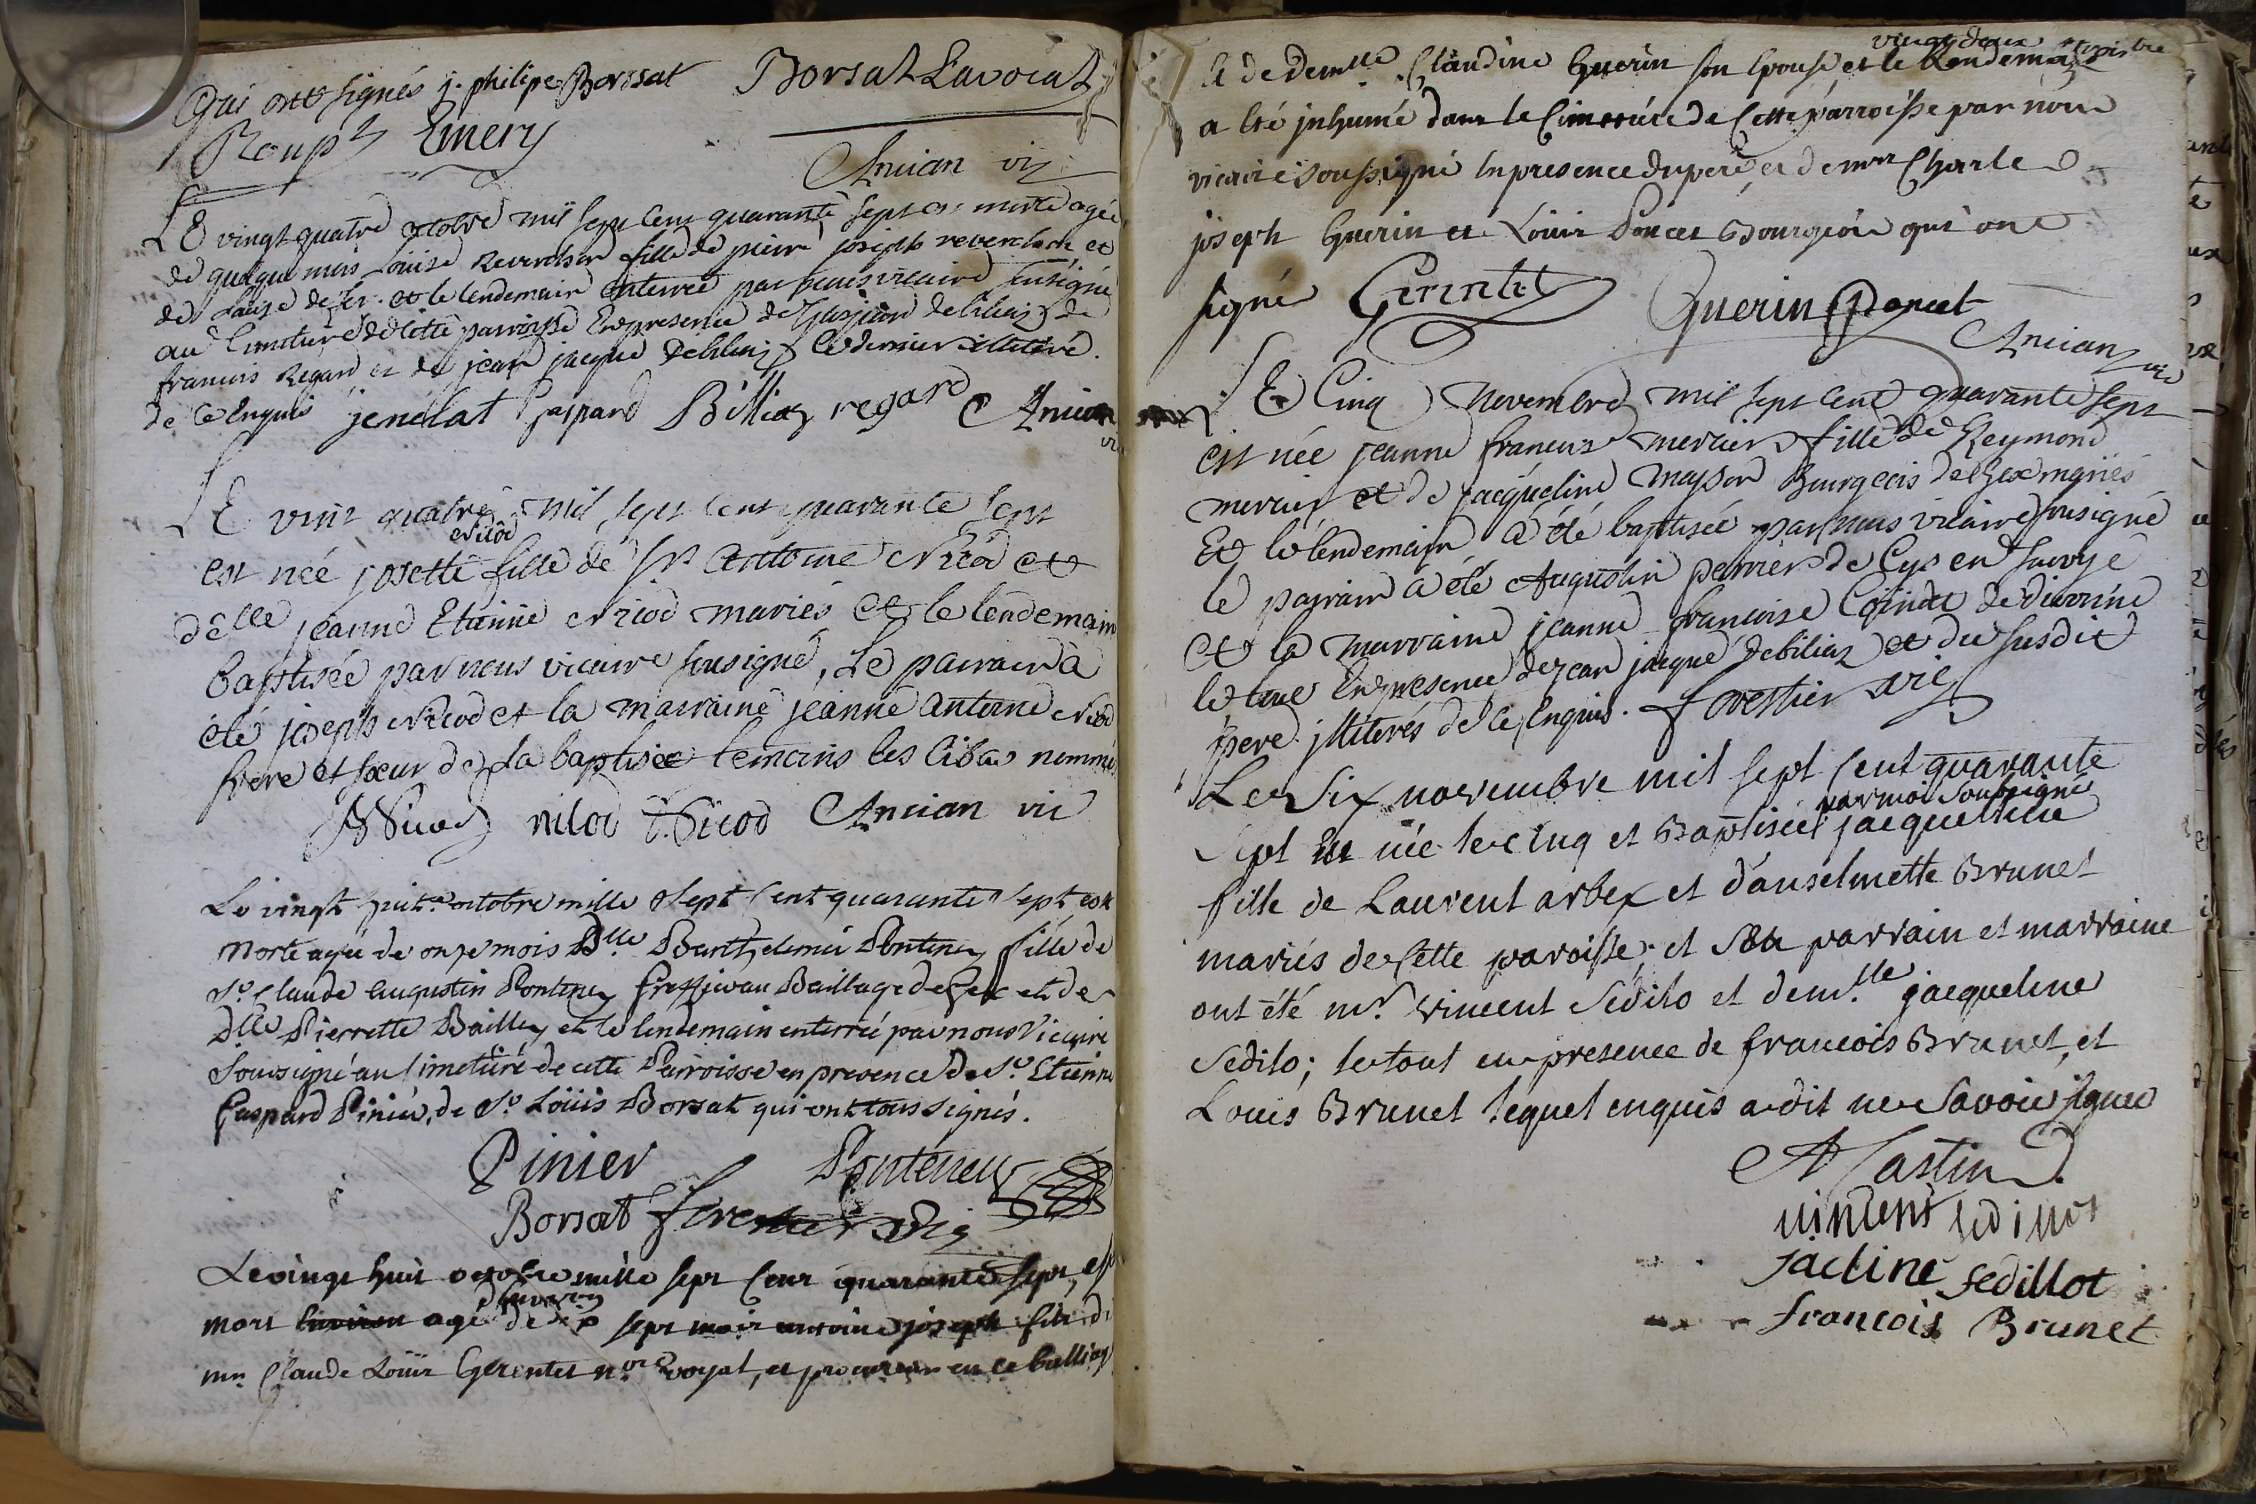 Qui ont signés j. philipe Borssat Borsat L'avocat
Roup Emery
Ancian vic
LE vingt quatre octobre mil sept cent quarante sept est morte agée
de quelque mois Louise Reverchon fille de pierre joseph reverchon et
de Louise et le lendemain enterrée par nous vicaire sousigné
au Cimetiere de cette parroisse En presence de Gaspard de biliaz de
francois Regard et de jean jacque Debiliaz Le dernier illiteré
de ce Enquis jenelat Gaspard Billiaz regard Ancian
vic
LE vint quatre mil sept cent quarante sept
Nicod
est née josette fille de Sr Antoine Nicod et
delle jeanne Etienne Nicod mariés et le lendemain
baptisée par nous vicaire sousigné, Le parrain à
été joseph Nicod et la marraine jeanne antoine Nicod
frere et sœur de la baptisée temoins les cibas nommés
Nicod nicod Nicod Ancian vic
Le vingt huit octobre mille sept cent quarante sept est
morte agée de onze mois Dlle Barthelemie Ponteney fille de
Sr Claude Augustin Ponteney Baillage de Gex et de
Dlle Pierrette Bailly et le lendemain enterrée par nous Vicaire
Soussigné au Cimetiere de cette Parroisse en presence de Sr Etienne
Gaspard Pinier, de Sr Loüis Borsat qui ont tous signés.
Pinier Ponteney
Borsat forestier vic
Le vingt huit octobre mille sept cent quarante sept, est
d'environ
mort environ agé de sept mois antoine joseph fils de
mre Claude Loüis Gerentet nre royal, et procureur en ce balliage
vingt deux octobre
et de demlle Claudine Guerin son Epouse et le Lendemain
a été jnhumé dans le Cimetiére de Cette parroisse par nous
vicaire soussigné en presence du pere et de mre Charle
joseph Guerin et Louis Poncet Bourgeois qui ont
signé Gerentet Guerin Poncet
Ancian vic
LE Cinq Novembre mil sept cent quarante sept
est née jeanne francoise mercier fille de Reymond
mercier et de jacqueline masson Bourgeois de Gex mariés
Et le lendemain a été baptisée par nous vicaire sousigné
le parrain a été Augustin perrier de Cys en Savoye
et la marraine jeanne francoise Cointet de divonne
le tout En presence de jean jacque debiliaz et du susdit
pere illiterés de ce Enquis. forestier vic
Le Six novembre mil sept cent quarante
par moi Soubsigné
Sept est née le cinq et Baptisée jacqueline
fille de Laurent arbex et d'anselmette Brunet
mariés de cette paroisse; et son parrain et marraine
ont été mr. vincent Sédilo et demlle jacqueline
Sedilo; le tout en presence de francois Brunet, et
Louis Brunet lequel enquis a dit ne Savoir signer
Castin
vincent sedillot
Jacline Sedillot
francois Brunet